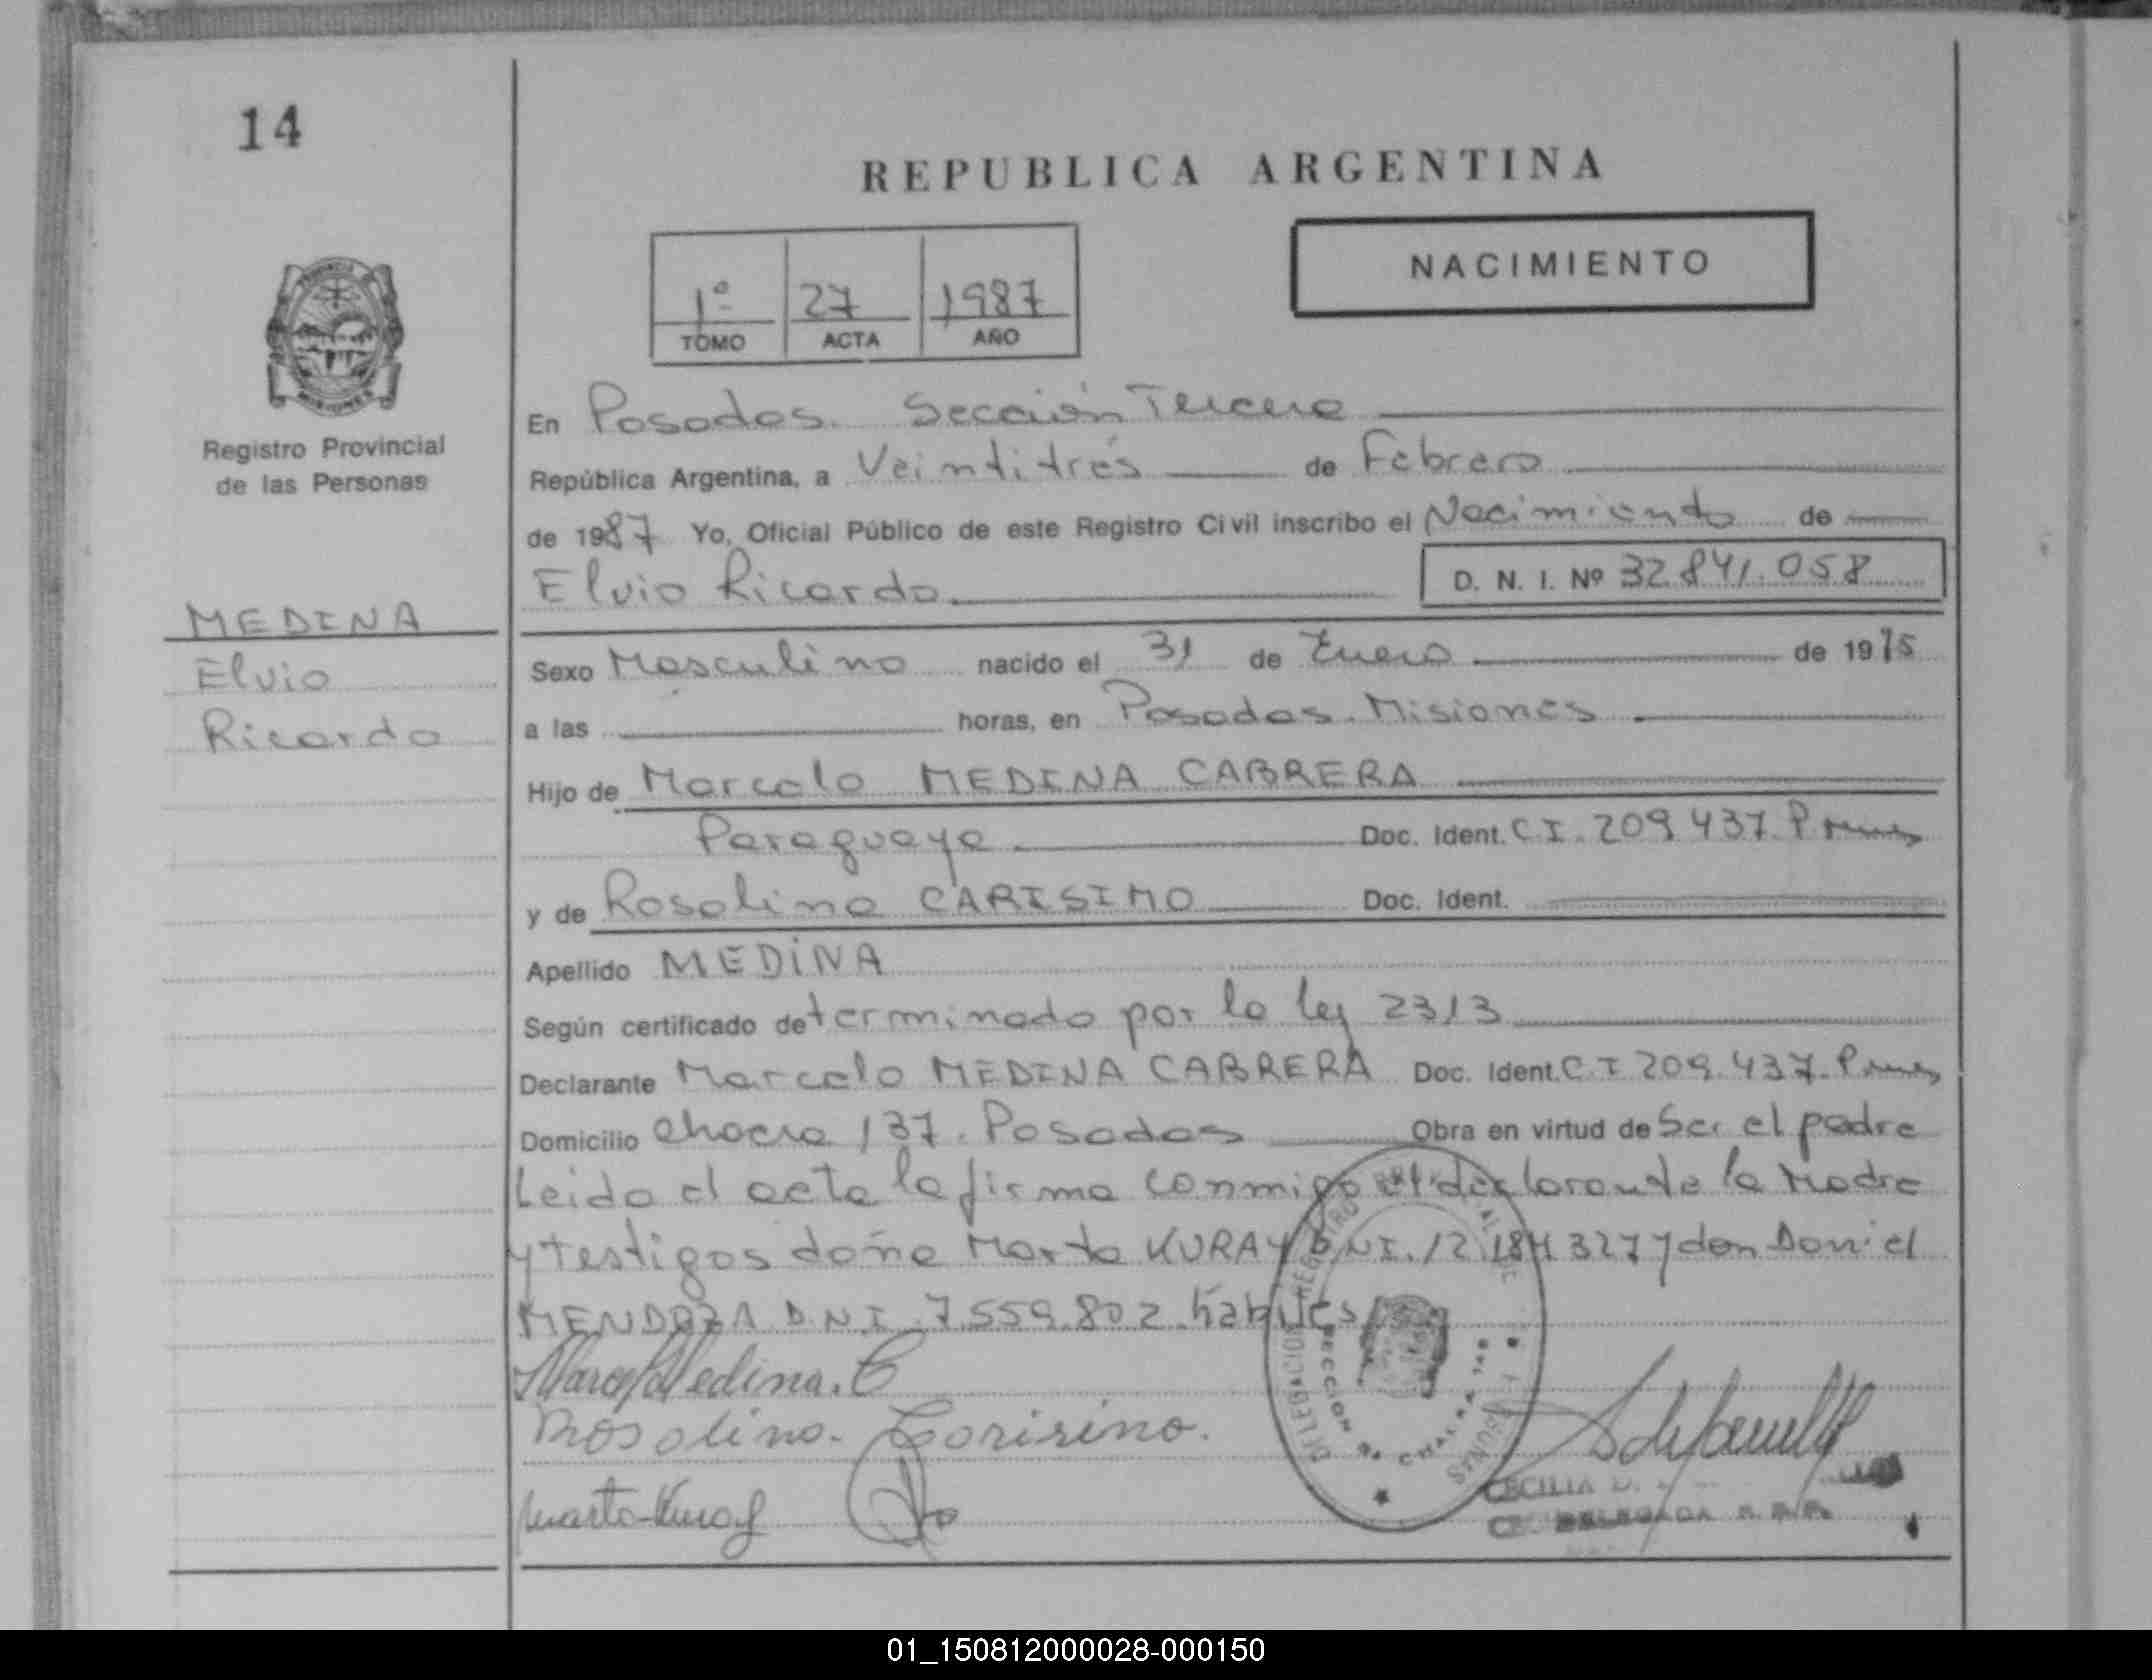 14
REPUBLICA ARGENTINA
1º 27 1987
TOMO ACTA AÑO
NACIMIENTO
MISIONES
Registro Provincial
de las Personas
MEDINA
Elvio
Ricardo
En Posadas. Sección Tercera
República Argentina, a Veintitrés de Febrero
de 1987 Yo, Oficial Público de este Registro Civil inscribo el Nacimiento de
Elvio Ricardo D. N. I. Nº 32.841.058
Sexo Masculino nacido el 31 de Enero de 1975
a las horas, en Posadas. Misiones
Hijo de Marcelo MEDINA CABRERA
Paraguaya Doc. Ident. C I. 209.437. P
y de Rosalina CARISIMO Doc. Ident.
Apellido MEDINA
Según certificado determinado por la ley 2313
Declarante Marcelo MEDINA CABRERA Doc. Ident. C.I 209.437. P
Domicilio Chacra 137. Posadas Obra en virtud de Ser el padre
Leida el acta la firma conmigo el declarante la Madre
y testigos doña Marta KURAY D.N.I. 12 184 327 y don Daniel
MENDOZA D.N.I. 7.559.802. hábiles
Marcelo Medina. C
Rosalina. Carisimo.
Marta Kuray
DELEGACION REGISTRO DE
SECCION 3a CHACRA
MISIONES
CECILIA D.
DELEGADA
01_150812000028-000150